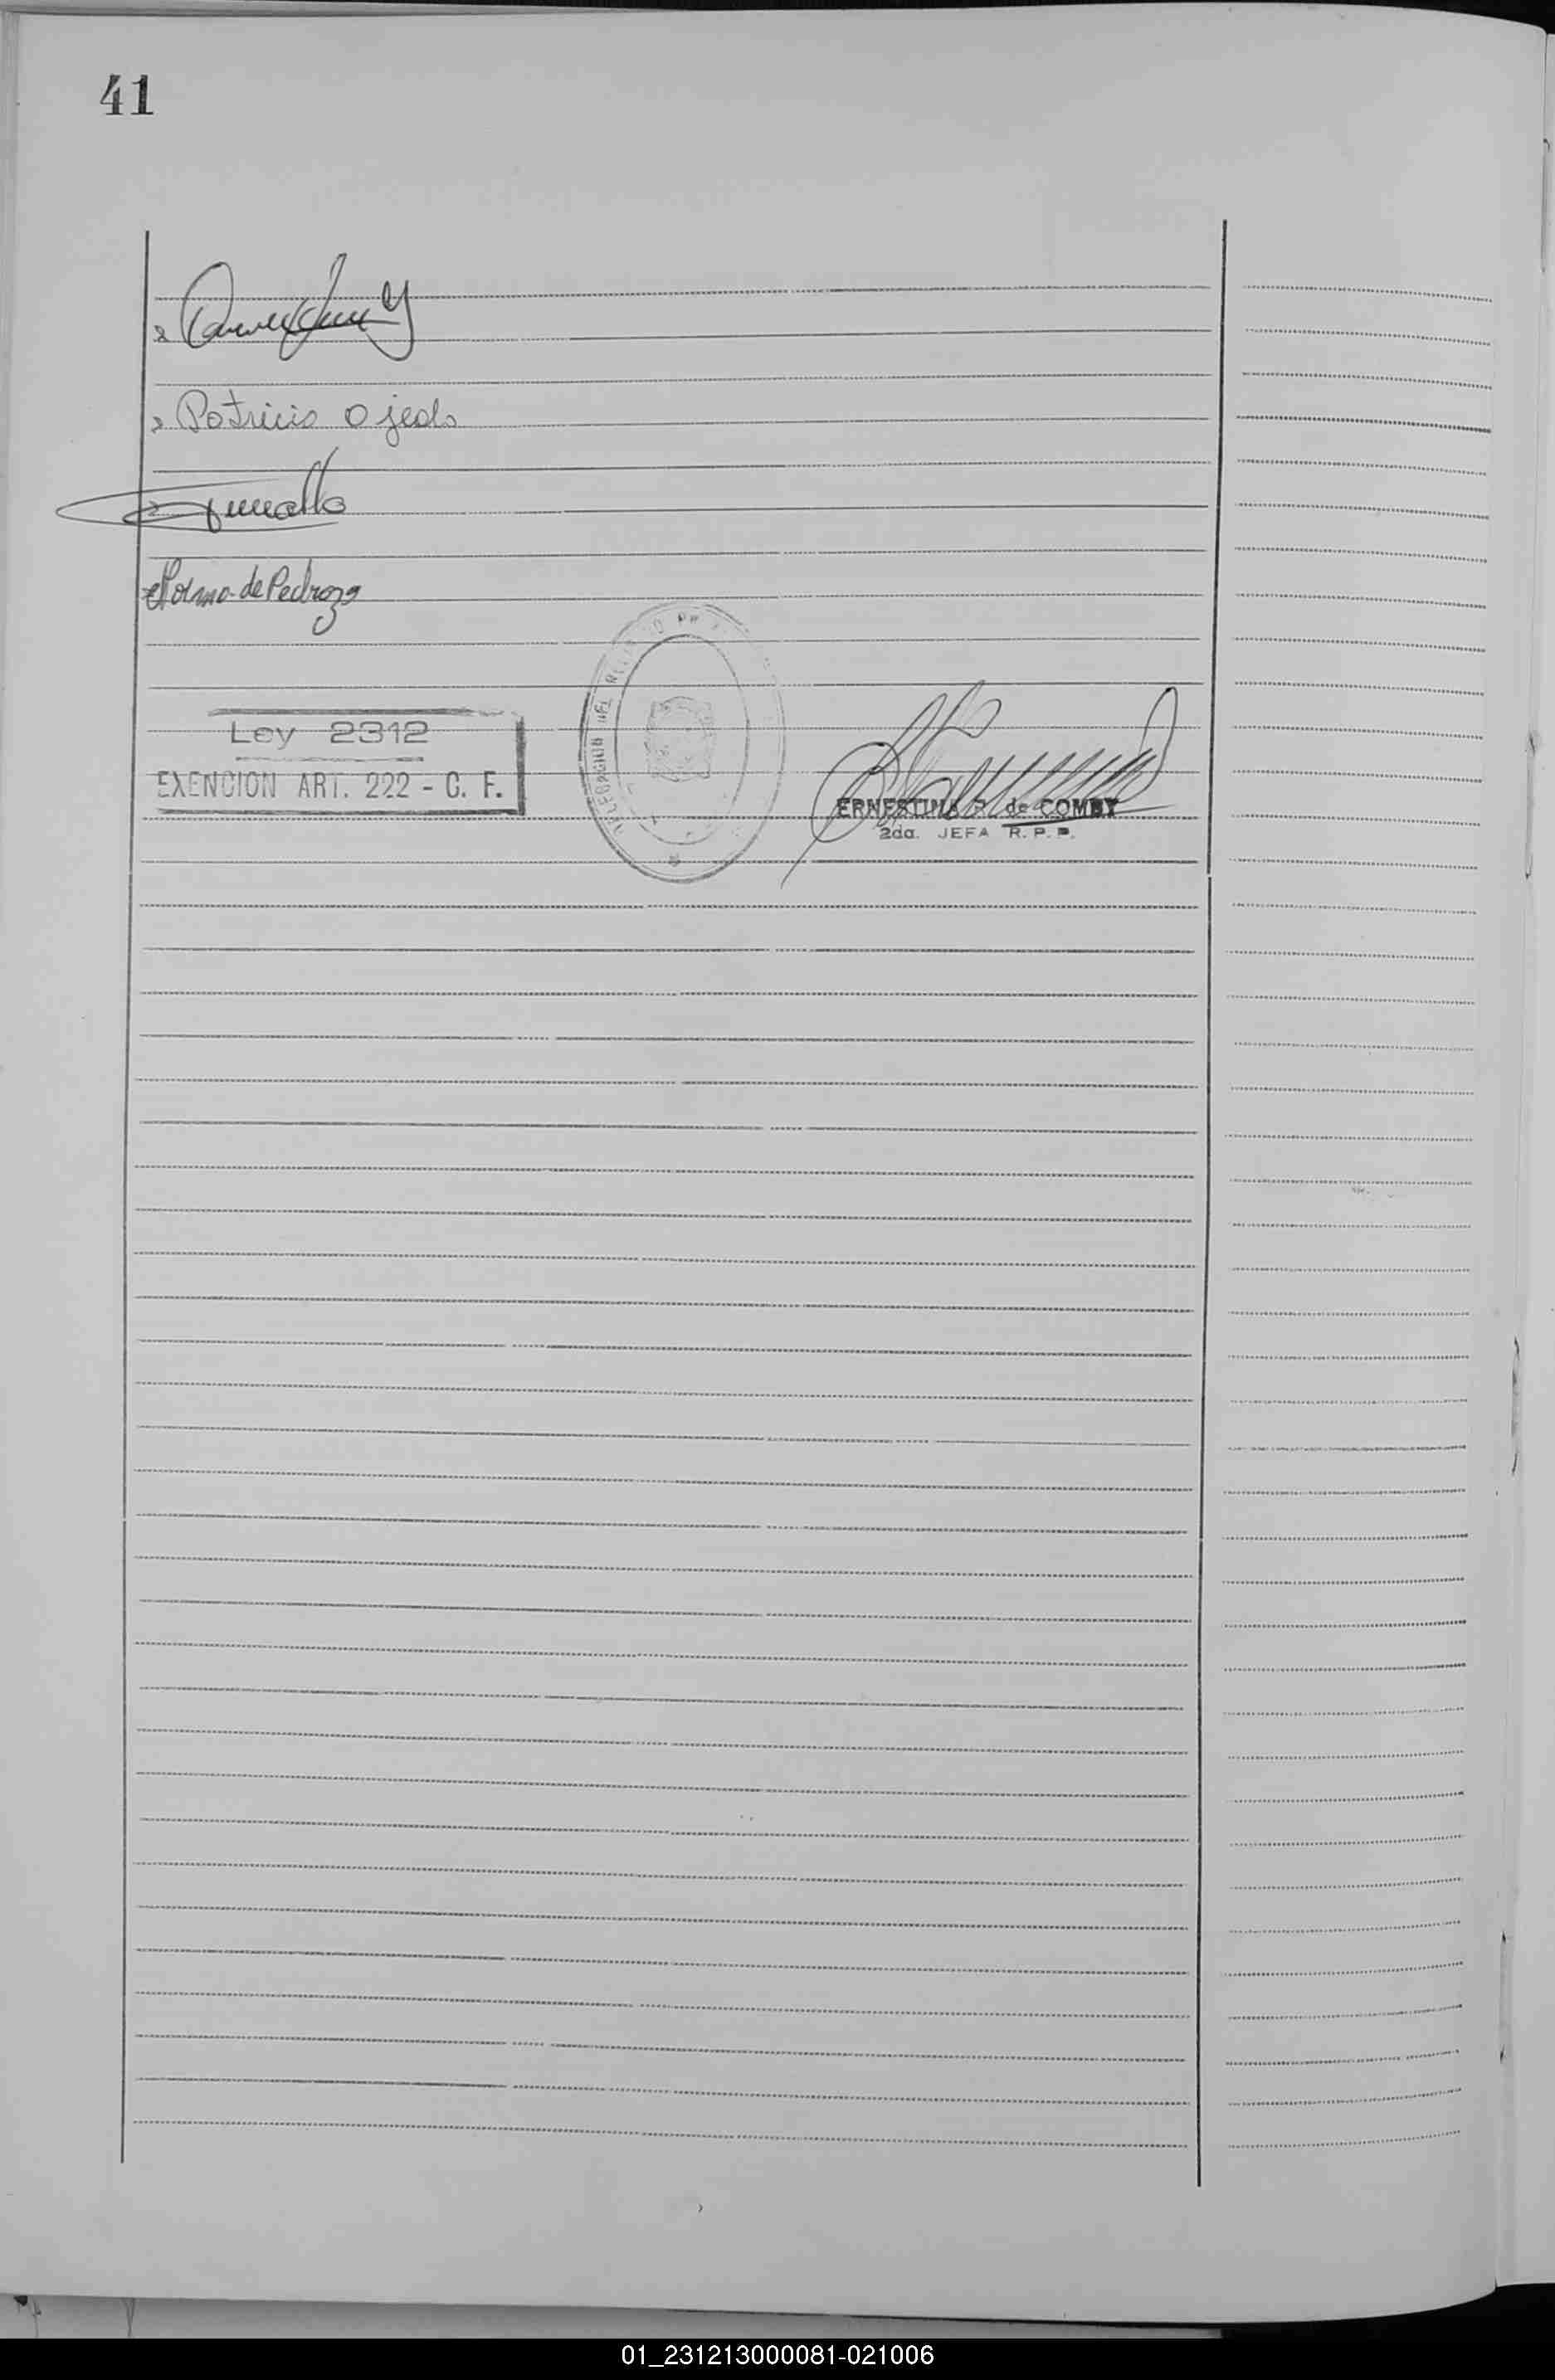 41
Patricia Ojeda
Norma de Pedrozo
Ley 2312
EXENCION ART. 222 - C. F.
DELEGACION DEL REGISTRO
ERNESTINA R. de COMBY
2da. JEFA R. P. P.
01_231213000081-021006